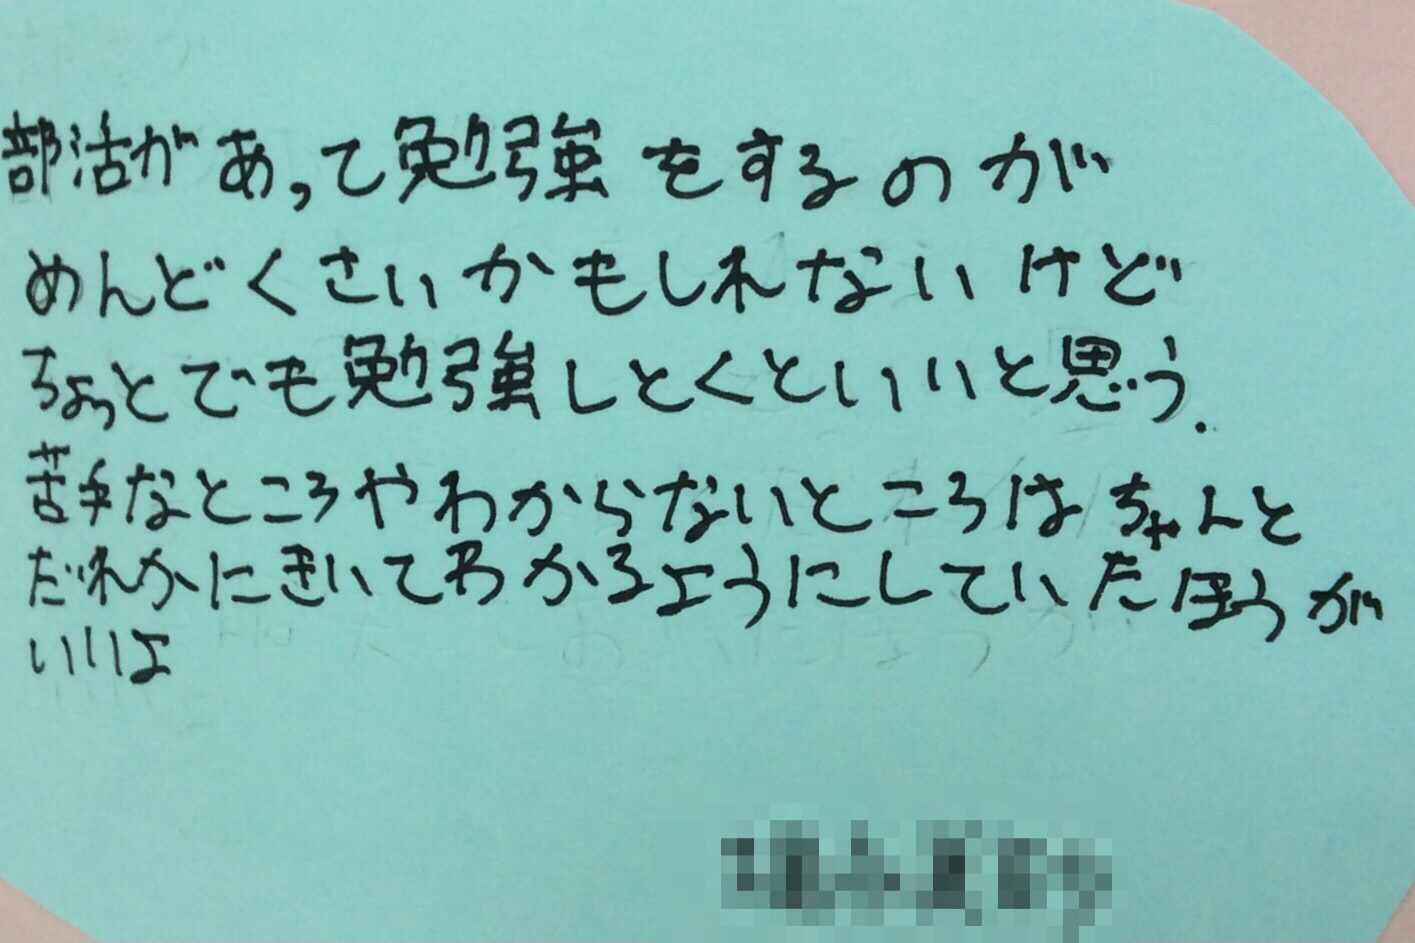 部活があって勉強をするのが
めんどくさいかもしれないけど
ちょっとでも勉強しとくといいと思う.
苦手なところやわからないところはちゃんと
だれかにきいてわかるようにしていたほうが
いいよ